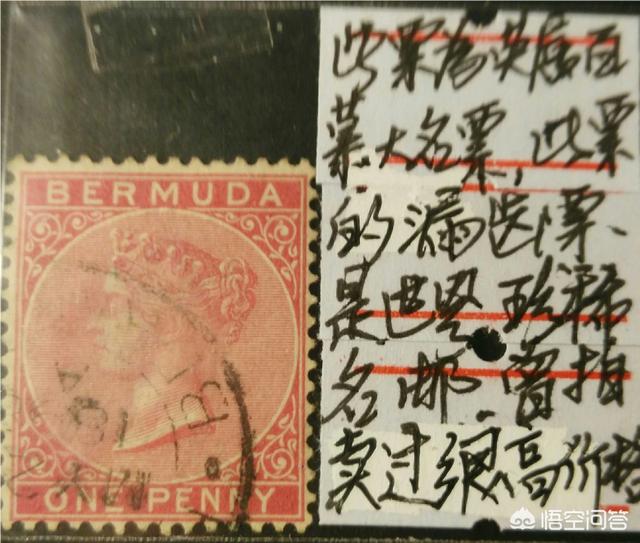 BERMUDA
ONE PENNY
此票为英属百
慕大名票,此票
的漏齿票、
是世界珍稀
名邮.曾拍
卖过很高价格
悟空问答